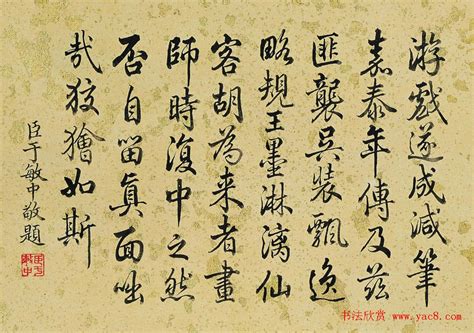 游戲遂成減筆
嘉泰年傳及茲
匪襲吳裝飄逸
略規王墨淋漓仙
客胡為来者畫
師時復中之然
否自留眞面咄
哉狡獪如斯
臣于敏中敬題
书法欣赏
www.yac8.com